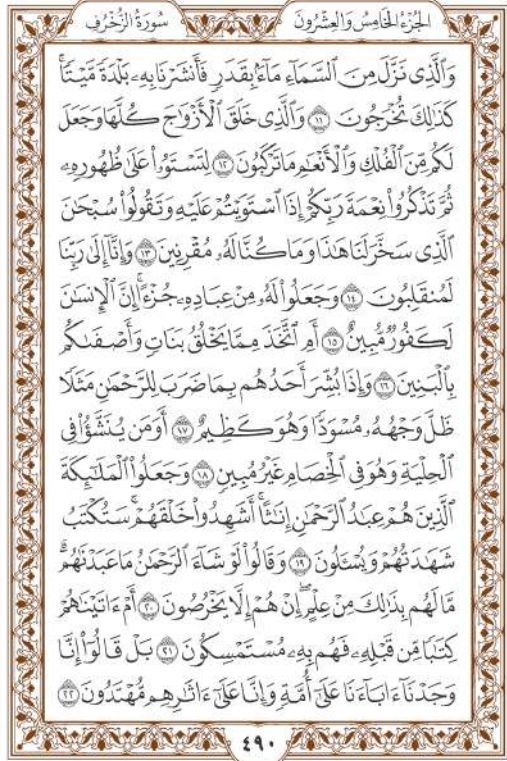 سُورَةُ الزُّخْرُفِ
الجُزْءُ الخَامِسُ وَالعِشْرُونَ
وَٱلَّذِى نَزَّلَ مِنَ ٱلسَّمَآءِ مَآءًۢ بِقَدَرٍ فَأَنشَرْنَا بِهِۦ بَلْدَةً مَّيْتًاۚ
كَذَٰلِكَ تُخْرَجُونَ ١١ وَٱلَّذِى خَلَقَ ٱلْأَزْوَٰجَ كُلَّهَا وَجَعَلَ
لَكُم مِّنَ ٱلْفُلْكِ وَٱلْأَنْعَٰمِ مَا تَرْكَبُونَ ١٢ لِتَسْتَوُۥا۟ عَلَىٰ ظُهُورِهِۦ
ثُمَّ تَذْكُرُوا۟ نِعْمَةَ رَبِّكُمْ إِذَا ٱسْتَوَيْتُمْ عَلَيْهِ وَتَقُولُوا۟ سُبْحَٰنَ
ٱلَّذِى سَخَّرَ لَنَا هَٰذَا وَمَا كُنَّا لَهُۥ مُقْرِنِينَ ١٣ وَإِنَّآ إِلَىٰ رَبِّنَا
لَمُنقَلِبُونَ ١٤ وَجَعَلُوا۟ لَهُۥ مِنْ عِبَادِهِۦ جُزْءًاۚ إِنَّ ٱلْإِنسَٰنَ
لَكَفُورٌ مُّبِينٌ ١٥ أَمِ ٱتَّخَذَ مِمَّا يَخْلُقُ بَنَاتٍ وَأَصْفَىٰكُم
بِٱلْبَنِينَ ١٦ وَإِذَا بُشِّرَ أَحَدُهُم بِمَا ضَرَبَ لِلرَّحْمَٰنِ مَثَلًا
ظَلَّ وَجْهُهُۥ مُسْوَدًّا وَهُوَ كَظِيمٌ ١٧ أَوَمَن يُنَشَّؤُا۟ فِى
ٱلْحِلْيَةِ وَهُوَ فِى ٱلْخِصَامِ غَيْرُ مُبِينٍ ١٨ وَجَعَلُوا۟ ٱلْمَلَٰٓئِكَةَ
ٱلَّذِينَ هُمْ عِبَٰدُ ٱلرَّحْمَٰنِ إِنَٰثًاۚ أَشَهِدُوا۟ خَلْقَهُمْۚ سَتُكْتَبُ
شَهَٰدَتُهُمْ وَيُسْـَٔلُونَ ١٩ وَقَالُوا۟ لَوْ شَآءَ ٱلرَّحْمَٰنُ مَا عَبَدْنَٰهُمۗ
مَّا لَهُم بِذَٰلِكَ مِنْ عِلْمٍۖ إِنْ هُمْ إِلَّا يَخْرُصُونَ ٢٠ أَمْ ءَاتَيْنَٰهُمْ
كِتَٰبًا مِّن قَبْلِهِۦ فَهُم بِهِۦ مُسْتَمْسِكُونَ ٢١ بَلْ قَالُوٓا۟ إِنَّا
وَجَدْنَآ ءَابَآءَنَا عَلَىٰٓ أُمَّةٍ وَإِنَّا عَلَىٰٓ ءَاثَٰرِهِم مُّهْتَدُونَ ٢٢
٤٩٠